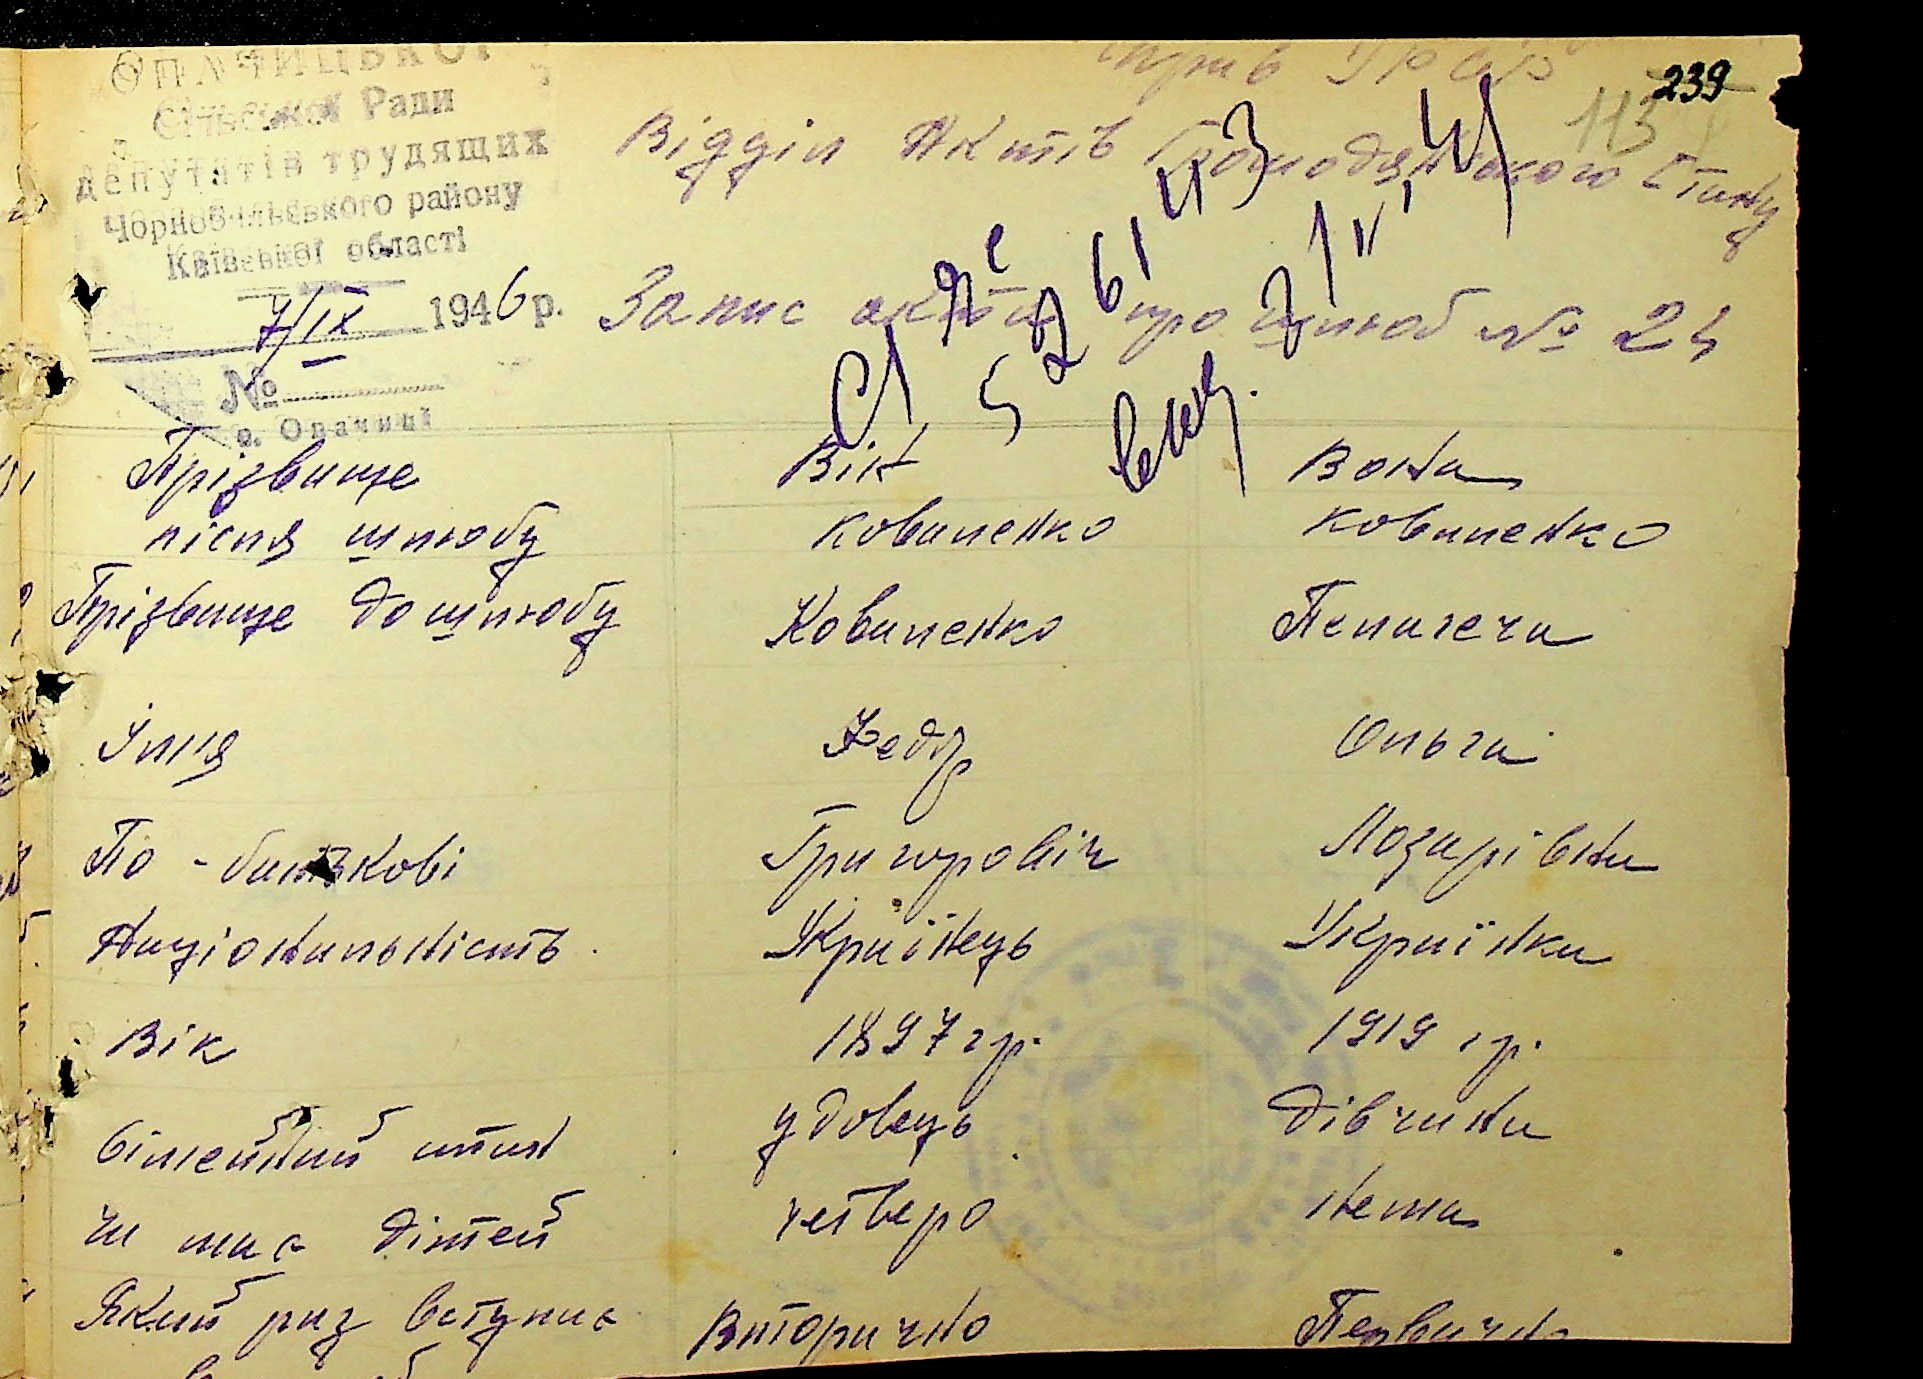 Опачицької
Сільської Ради
депутатів трудящих
Чорнобильського району
Київської області
7/IX 1946 р.
№
с. Опачичі
239
113
Відділ Актів Громодянського Стану
Запис акта про шлюб № 24
Прізвище Він Вона
після шлюбу Коваленко Коваленко
Прізвище до шлюбу Коваленко Пепагеча
Ім'я Федір Ольга
По-батькові Григоровіч Лозарівна
Національність Українець Українка
Вік 1897 гр. 1919 гр.
Сімейний стан удовець дівчина
чи має дітей четверо Нема
Який раз вступає Вторично Первично